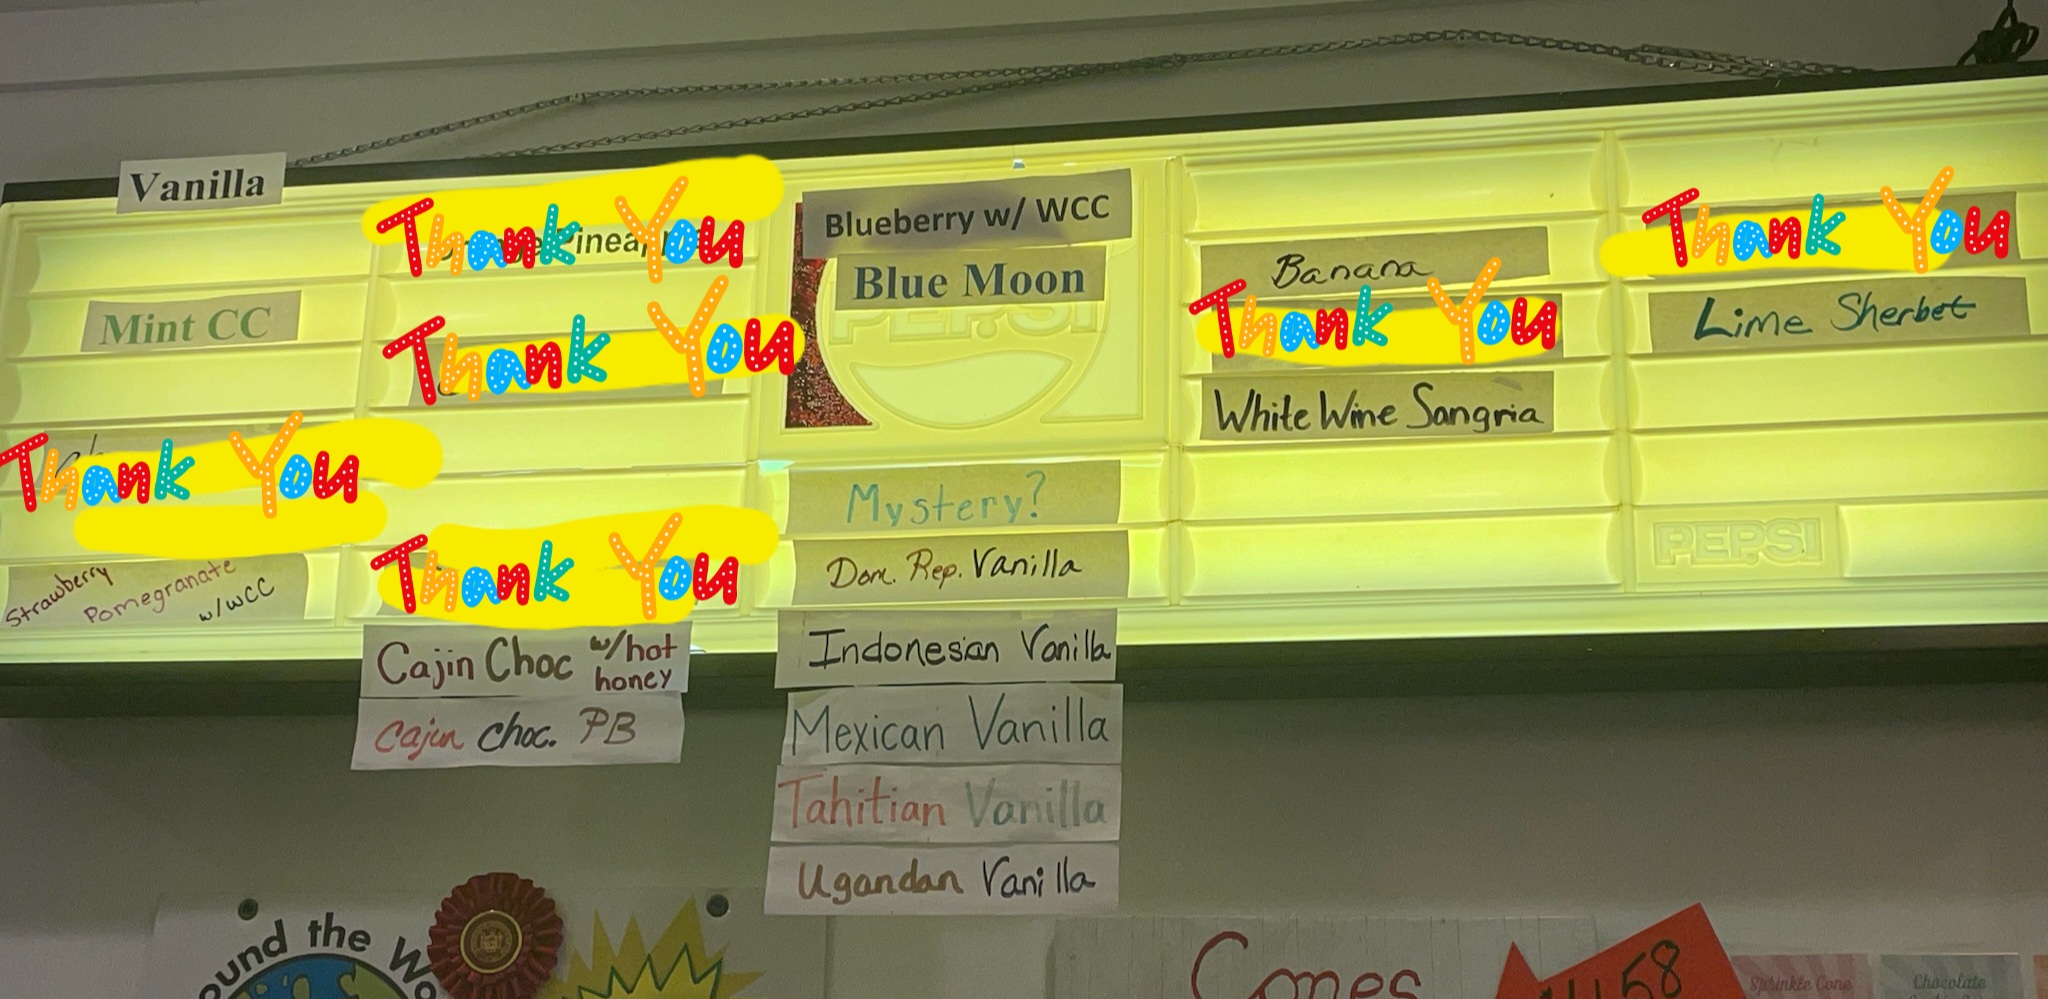 Vanilla
Mint CC
Thank You
Strawberry
Pomegranate
w/WCC
Thank You
Thank You
Thank You
Cajin Choc w/hot
honey
Cajun Choc. PB
Blueberry w/ WCC
Blue Moon
PEPSI
Mystery?
Dom. Rep. Vanilla
Indonesian Vanilla
Mexican Vanilla
Tahitian Vanilla
Ugandan Vanilla
Banana
Thank You
White Wine Sangria
Thank You
Lime Sherbet
PEPSI
the
Cones
Sprinkle Cone
Chocolate